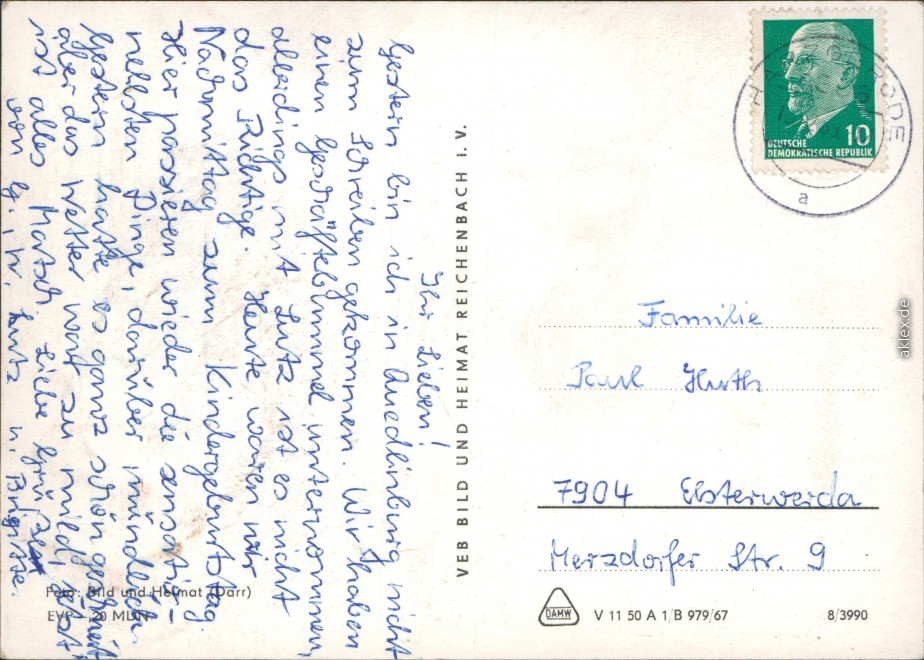 Ihr Lieben!
Gestern bin ich in Quedlinburg nicht
zum Schreiben gekommen. Wir haben
einen Geschäftsbummel unternommen,
allerdings mit Lutz ist es nicht
das Richtige. Heute waren wir
Nachmittag zum Kindergeburtstag
Hier passieren wieder die sensatio-
nellsten Dinge, darüber mündlich.
Gestern hatte es ganz schön geschneit
aber das Wetter war zu mild, jetzt
ist alles Matsch Liebe Grüße
von Lutz u. Brigitte.
VEB BILD UND HEIMAT REICHENBACH i. V.
Foto: Bild und Heimat (Darr)
EVP 20 MDN
HARZGERODE
a
10
DEUTSCHE
DEMOKRATISCHE REPUBLIK
Familie
Paul Huth
7904 Elsterwerda
Merzdorfer Str. 9
DAMW
V 11 50 A 1/B 979/67
8/3990
akiex.de